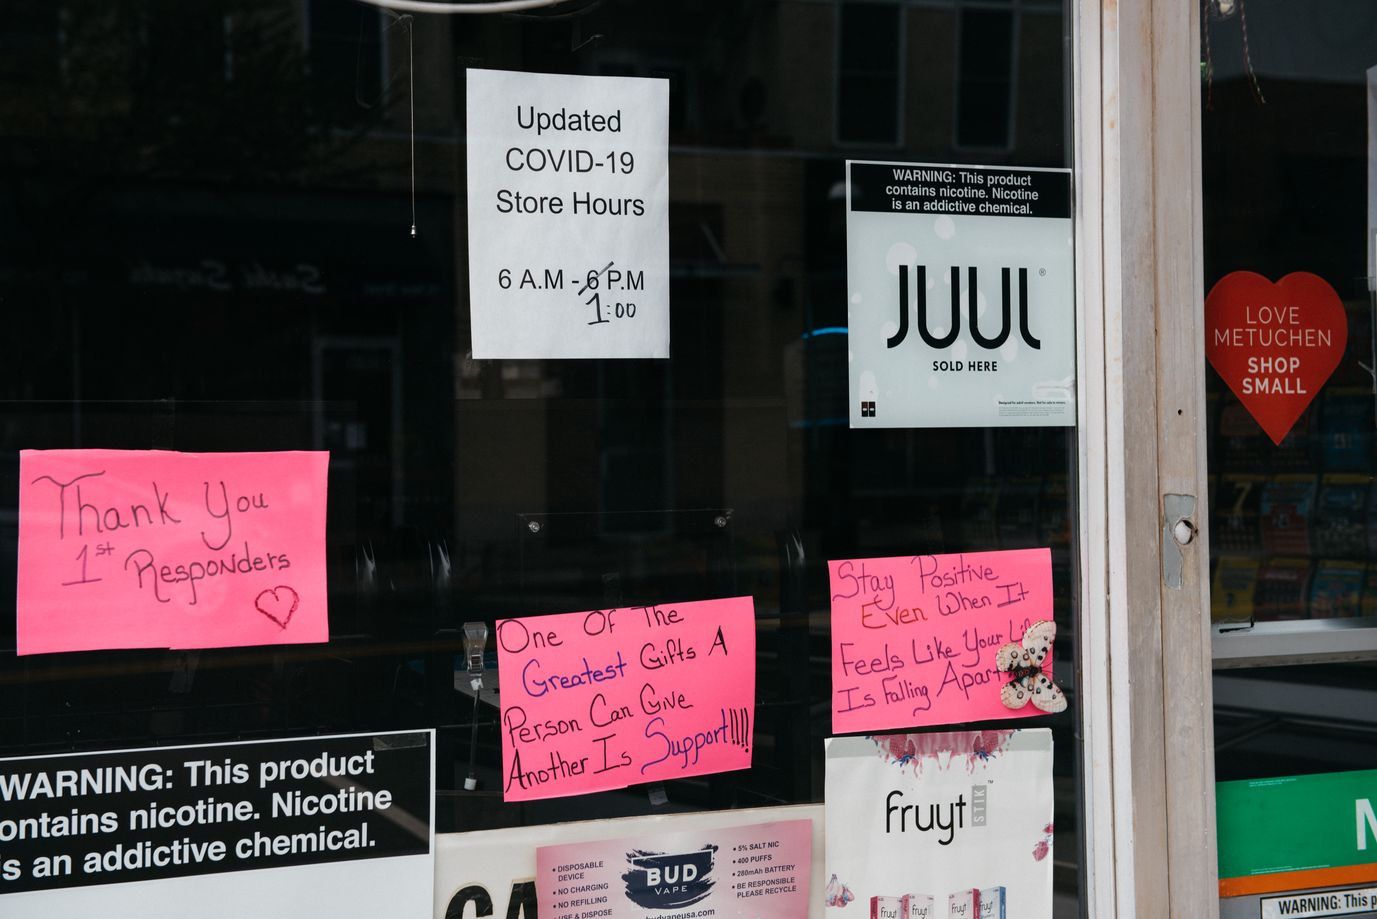 Updated
COVID-19
Store Hours
6 A.M - 6 P.M
1:00
WARNING: This product
contains nicotine. Nicotine
is an addictive chemical.
JUUL®
SOLD HERE
LOVE
METUCHEN
SHOP
SMALL
Thank You
1st Responders
One Of The
Greatest Gifts A
Person Can Give
Another Is Support!!!!
Stay Positive
Even When It
Feels Like Your
Is Falling Apart
WARNING: This product
ontains nicotine. Nicotine
is an addictive chemical.
fruyt STIK™
fruyt
fruyt
fruyt
BUD
VAPE
• DISPOSABLE
DEVICE
• NO CHARGING
• NO REFILLING
• USE & DISPOSE
• 5% SALT NIC
• 400 PUFFS
• 280mAh BATTERY
• BE RESPONSIBLE
PLEASE RECYCLE
budvapeusa.com
WARNING: This p